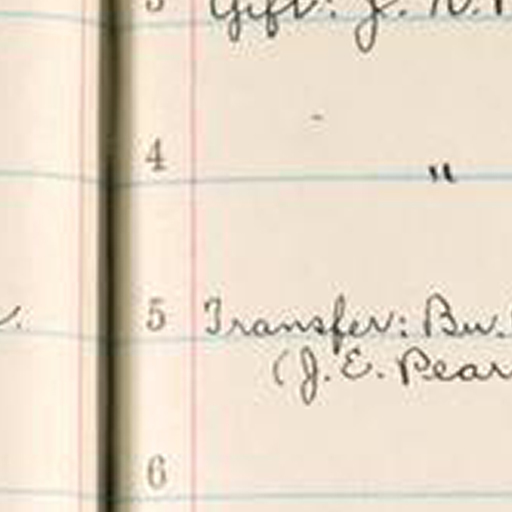 3 Gift: J.
4 "
5 Transfer: Bu.
(J. E. Pear
6